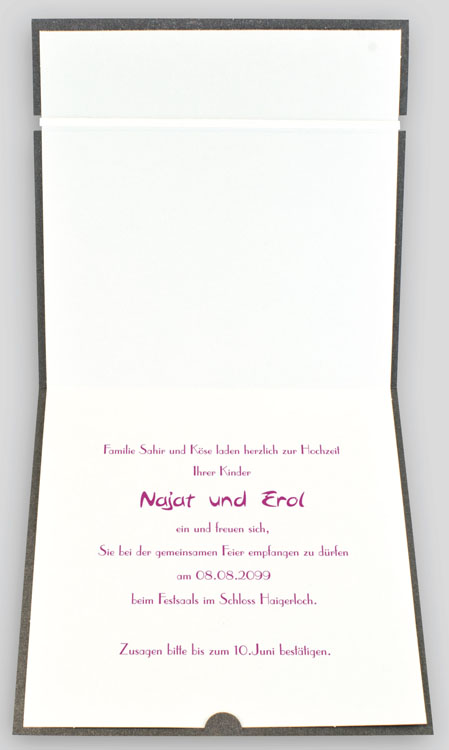 Familie Sahir und Köse laden herzlich zur Hochzeit
Ihrer Kinder
Najat und Erol
ein und freuen sich,
Sie bei der gemeinsamen Feier empfangen zu dürfen
am 08.08.2099
beim Festsaals im Schloss Haigerloch.
Zusagen bitte bis zum 10.Juni bestätigen.